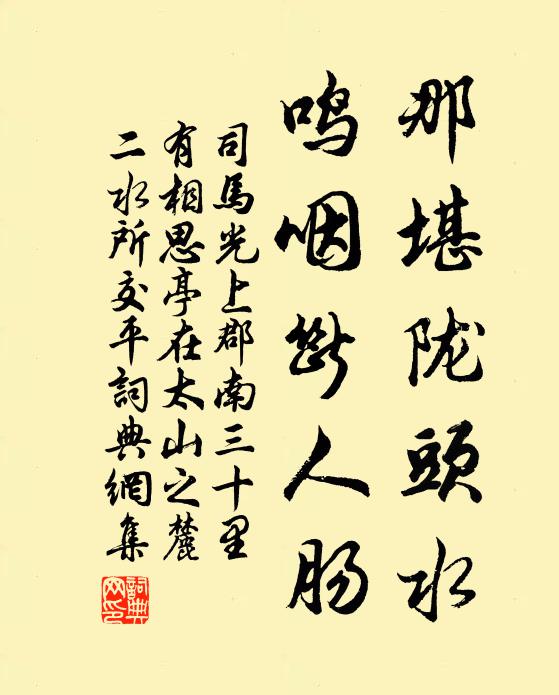 那堪陇頭水
鸣咽断人肠
司馬光上郡南三十里
有相思亭在太山之麓
二水所交平詞典網集
詞典網印